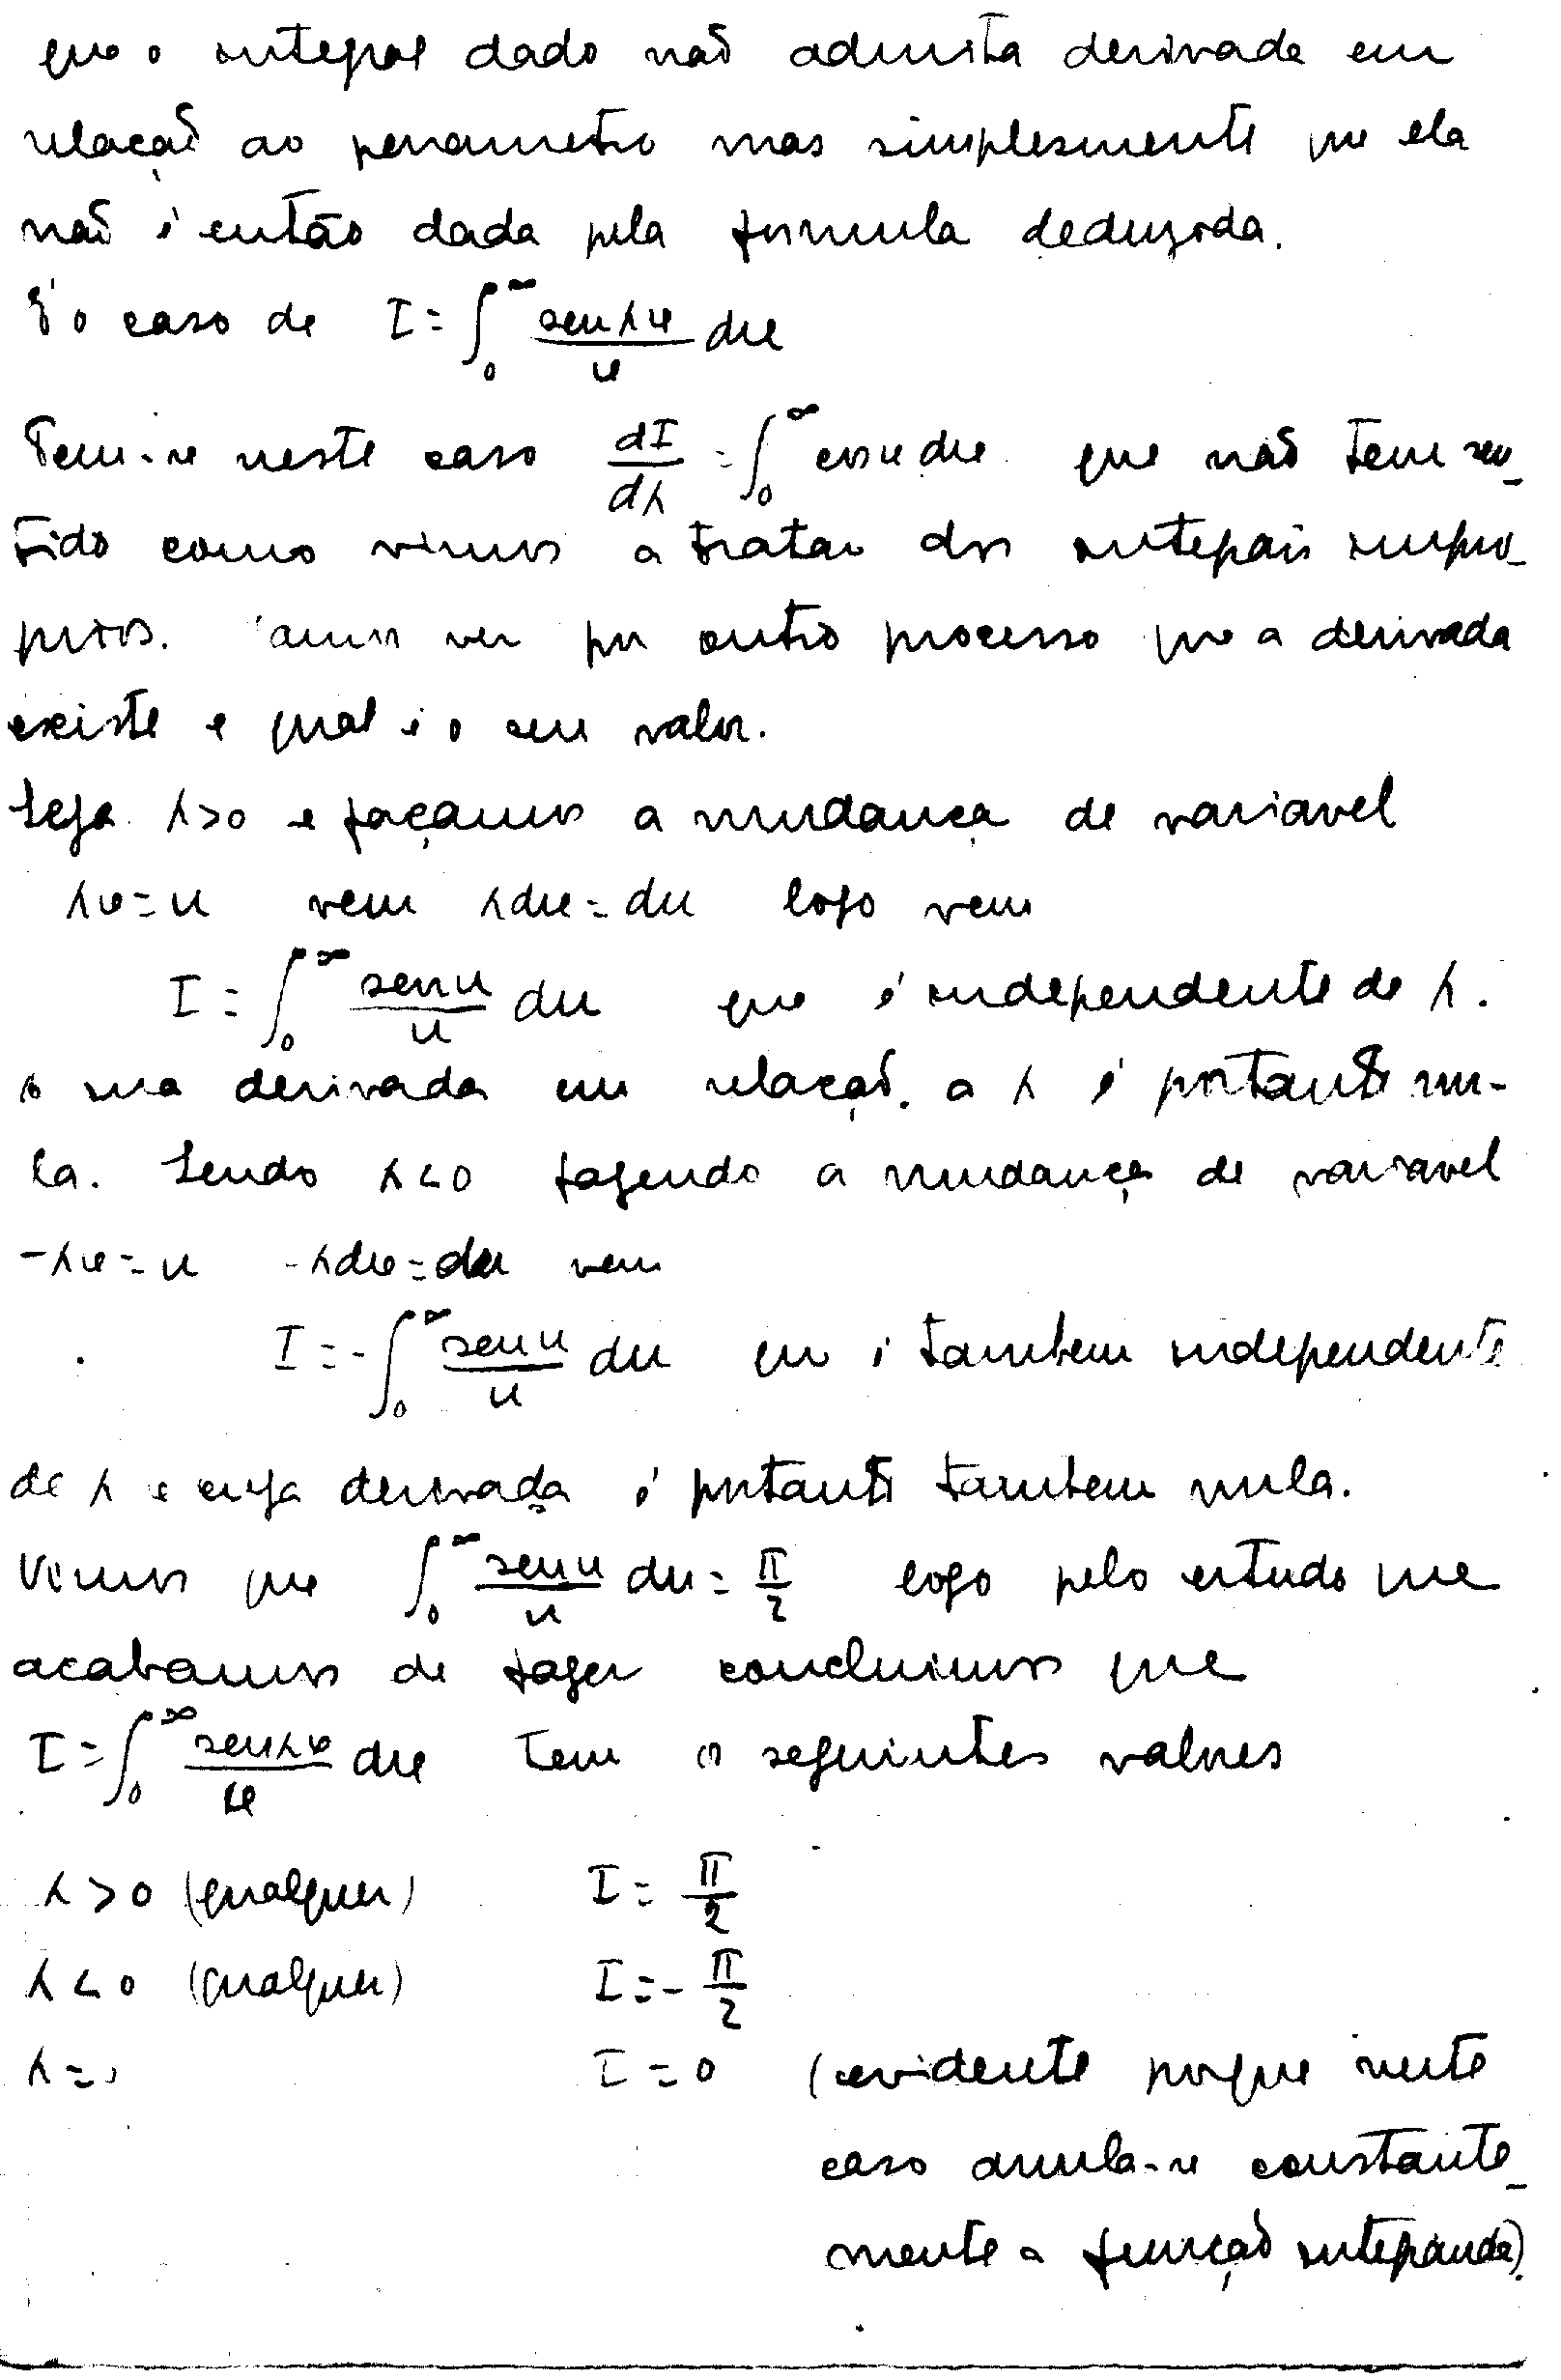 que o integral dado não admita derivada em
relação ao parametro mas simplesmente que ela
não é então dada pela formula deduzida.
É o caso de I = ∫₀^∞ (sen λx / x) dx
Tem-se neste caso dI/dλ = ∫₀^∞ cos x dx que não tem sen-
tido como vimos a tratar dos integrais impro-
prios. Vamos ver por outro processo que a derivada
existe e qual é o seu valor.
Seja λ>0 e façamos a mudança de variavel
λx = u vem λdx = du logo vem
I = ∫₀^∞ (sen u / u) du que é independente de λ.
a sua derivada em relação a λ é portanto nu-
la. Sendo λ<0 fazendo a mudança de variavel
-λx = u -λdx = du vem
I = -∫₀^∞ (sen u / u) du que é tambem independente
de λ e cuja derivada é portanto tambem nula.
Vimos que ∫₀^∞ (sen u / u) du = π/2 logo pelo estudo que
acabamos de fazer concluimos que
I = ∫₀^∞ (sen λx / x) dx tem os seguintes valores
λ > 0 (qualquer) I = π/2
λ < 0 (qualquer) I = - π/2
λ = 0 I = 0 (evidente porque neste
caso anula-se constante-
mente a função integranda).